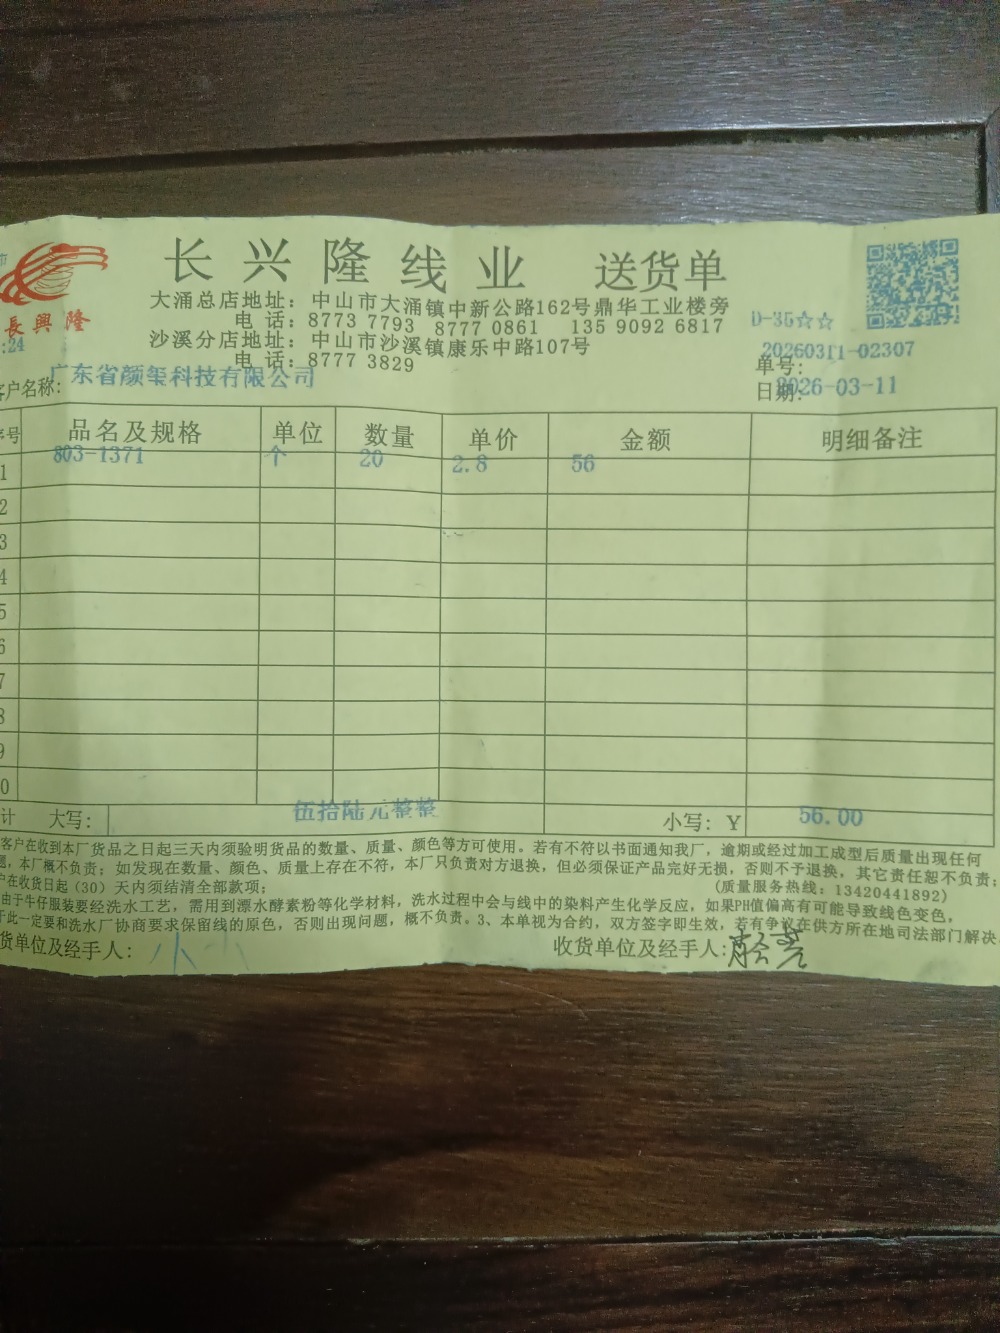 长兴隆线业 送货单
市
長興隆
:24
大涌总店地址：中山市大涌镇中新公路162号鼎华工业楼旁
电 话：8773 7793 8777 0861 135 9092 6817
沙溪分店地址：中山市沙溪镇康乐中路107号
电 话：8777 3829
D-35☆☆
单号：20260311-02307
日期：2026-03-11
客户名称：广东省颜玺科技有限公司
序号 品名及规格 单位 数量 单价 金额 明细备注
1 803-1371 个 20 2.8 56
2
3
4
5
6
7
8
9
0
计 大写： 伍拾陆元整整 小写：Y 56.00
客户在收到本厂货品之日起三天内须验明货品的数量、质量、颜色等方可使用。若有不符以书面通知我厂，逾期或经过加工成型后质量出现任何
题，本厂概不负责；如发现在数量、颜色、质量上存在不符，本厂只负责对方退换，但必须保证产品完好无损，否则不予退换，其它责任恕不负责；
户在收货日起（30）天内须结清全部款项； （质量服务热线：13420441892）
由于牛仔服装要经洗水工艺，需用到漂水酵素粉等化学材料，洗水过程中会与线中的染料产生化学反应，如果PH值偏高有可能导致线色变色，
于此一定要和洗水厂协商要求保留线的原色，否则出现问题，概不负责。3、本单视为合约，双方签字即生效，若有争议在供方所在地司法部门解决
货单位及经手人： 小小 收货单位及经手人：